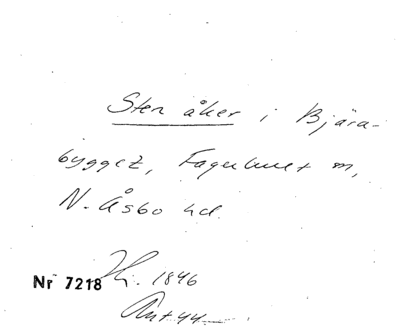 Sten åker i Bjära-
bygget, Fagerhult m,
N. Åsbo hd.
Nr 7218 Hi. 1846
Ant 44